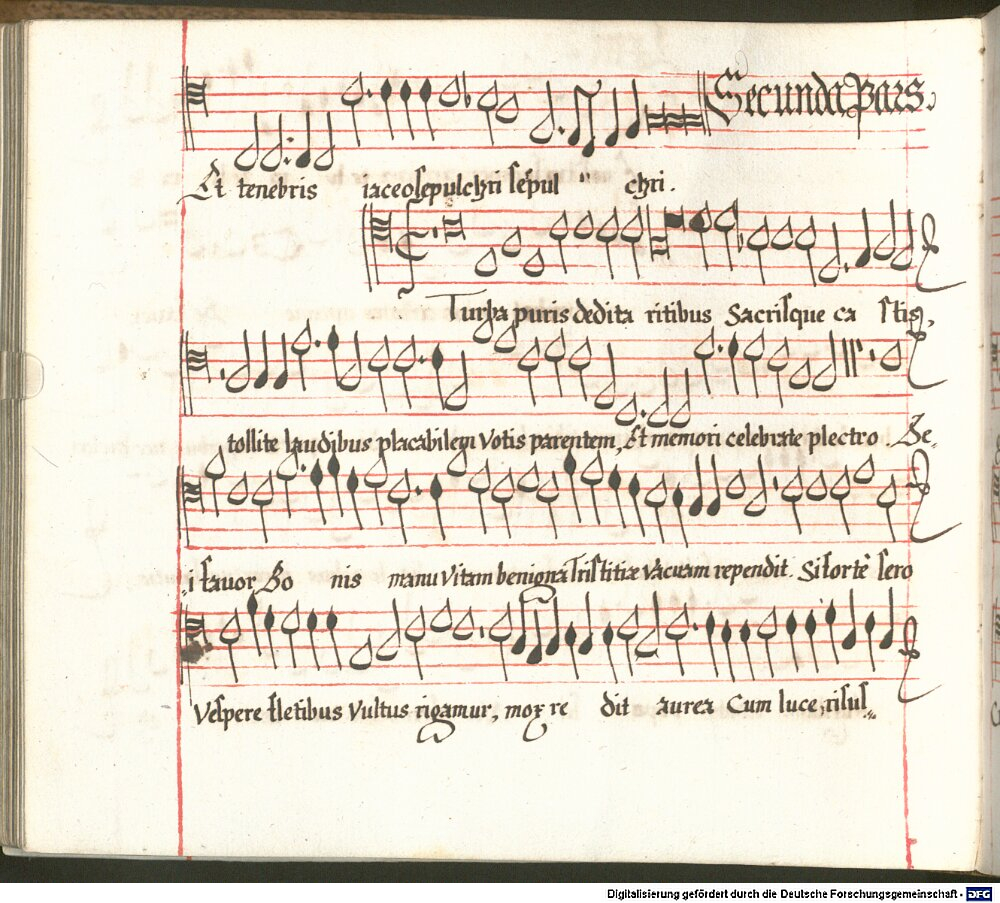 Secunda Pars.
Et tenebris iaceo sepulchri sepul " chri.
Turba puris dedita ritibus Sacrisque ca stis,
tollite laudibus placabilem Votis parentem, Et memori celebrate plectro De,
i favor Bo nis manu Vitam benigna Tristitiæ vacuam rependit. Si forte sero
Vespere fletibus Vultus rigamur, mox re dit aurea Cum luce, risus
Digitalisierung gefördert durch die Deutsche Forschungsgemeinschaft - DFG